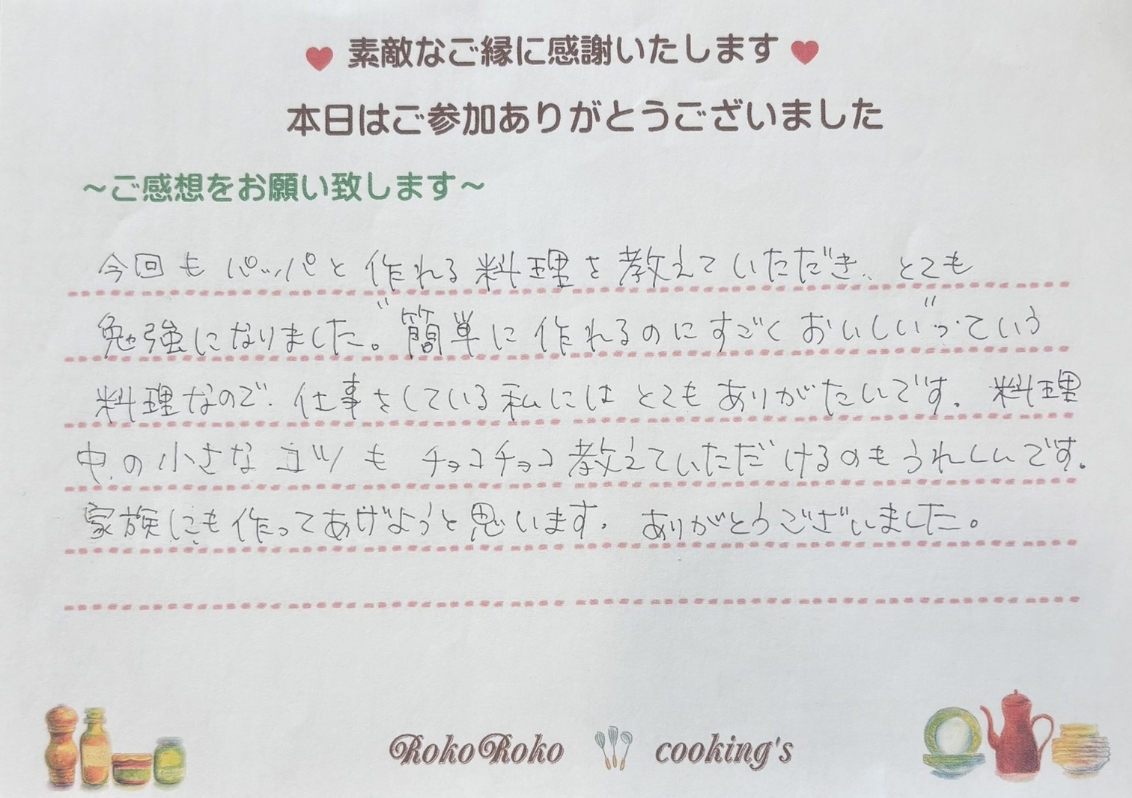 ♥素敵なご縁に感謝いたします♥
本日はご参加ありがとうございました
～ご感想をお願い致します～
今回も パッパと 作れる 料理を 教えていただき、とても
勉強になりました。"簡単に 作れるのにすごく おいしい"っていう
料理なので、仕事をしている 私には とても ありがたいです。料理
中の 小さな コツも チョコチョコ 教えていただけるのもうれしいです。
家族にも 作ってあげようと思います。ありがとうございました。
RokoRoko cooking's